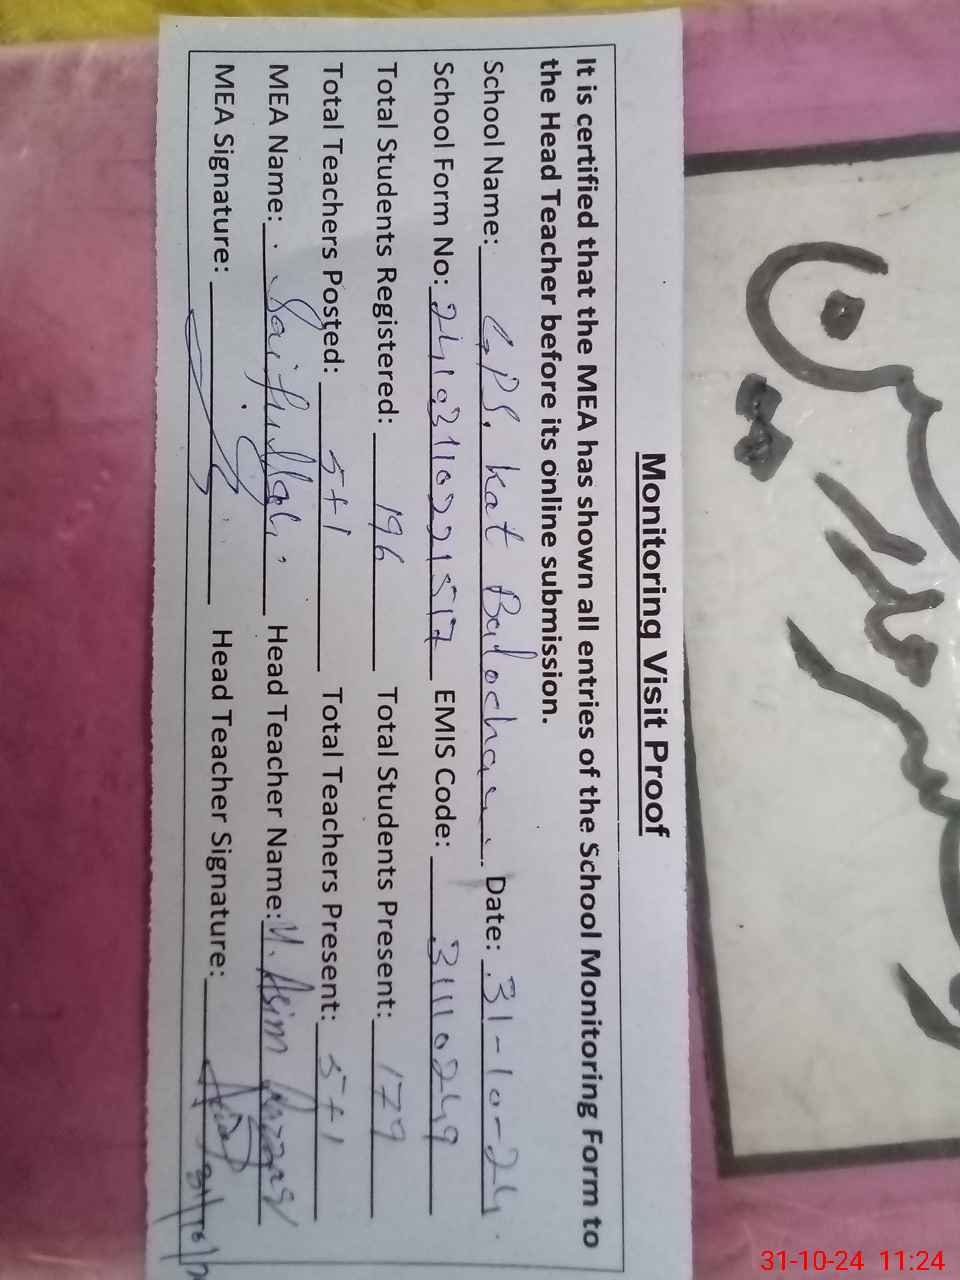 Monitoring Visit Proof
It is certified that the MEA has shown all entries of the School Monitoring Form to
the Head Teacher before its online submission.
School Name: GPS. Kat Balochan. Date: 31-10-24.
School Form No: EMIS Code: 31110249
Total Students Registered: 196 Total Students Present: 179
Total Teachers Posted: 5+1 Total Teachers Present: 5+1
MEA Name: Saifullah Head Teacher Name: M. Asim
MEA Signature: Head Teacher Signature:
31-10-24 11:24